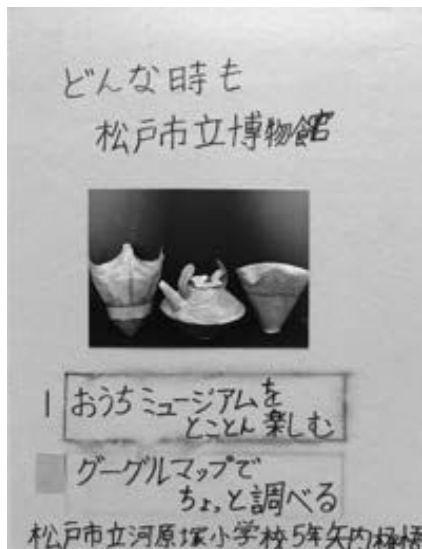 どんな時も
松戸市立博物館
1 おうちミュージアムを
とことん楽しむ
グーグルマップで
ちょっと調べる
松戸市立河原塚小学校5年矢内